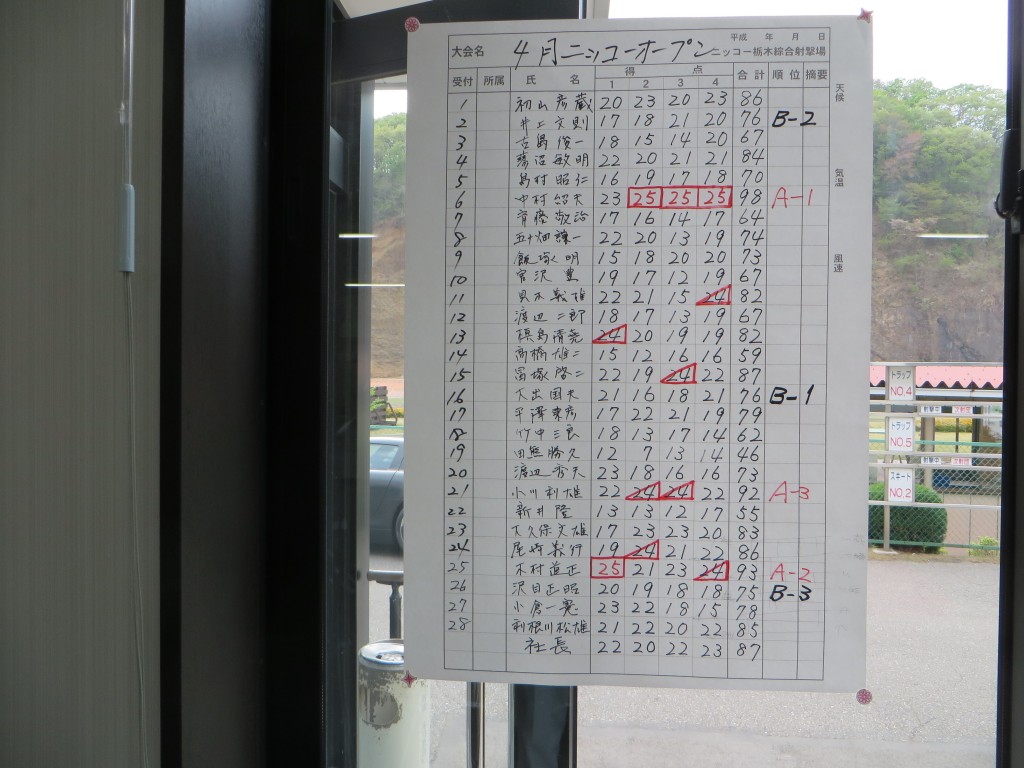 平成 年 月 日
大会名 4月ニッコーオープン ニッコー栃木綜合射撃場
受付 所属 氏 名 得 点 合計 順位 摘要
1 2 3 4
1 初山彦蔵 20 23 20 23 86
2 井上文則 17 18 21 20 76 B-2
3 古島俊一 18 15 14 20 67
4 敏明 22 20 21 21 84
5 島村昭仁 16 19 17 18 70
6 中村 夫 23 25 25 25 98 A-1
7 斉藤敬治 17 16 14 17 64
8 五十畑譲一 22 20 13 19 74
9 飯塚 明 15 18 20 20 73
10 宮沢 豊 19 17 12 19 67
11 木 雄 22 21 15 24 82
12 渡辺二郎 18 17 13 19 67
13 島清 24 20 19 19 82
14 高橋雄二 15 12 16 16 59
15 冨塚啓二 22 19 24 22 87
16 大出国夫 21 16 18 21 76 B-1
17 平澤 彦 17 22 21 19 79
18 竹中三良 18 13 17 14 62
19 田 勝久 12 7 13 14 46
20 渡辺秀夫 23 18 16 16 73
21 小川利雄 22 24 24 22 92 A-3
22 新井 隆 13 13 12 17 55
23 大久保文雄 17 23 23 20 83
24 尾崎 行 19 24 21 22 86
25 木村直正 25 21 23 24 93 A-2
26 沢目正昭 20 19 18 18 75 B-3
27 小倉一 23 22 18 15 78
28 利根川松雄 21 22 20 22 85
社長 22 20 22 23 87
天候
気温
風速
トラップ
NO.4
射撃中
トラップ
NO.5
射撃中
スキート
NO.2